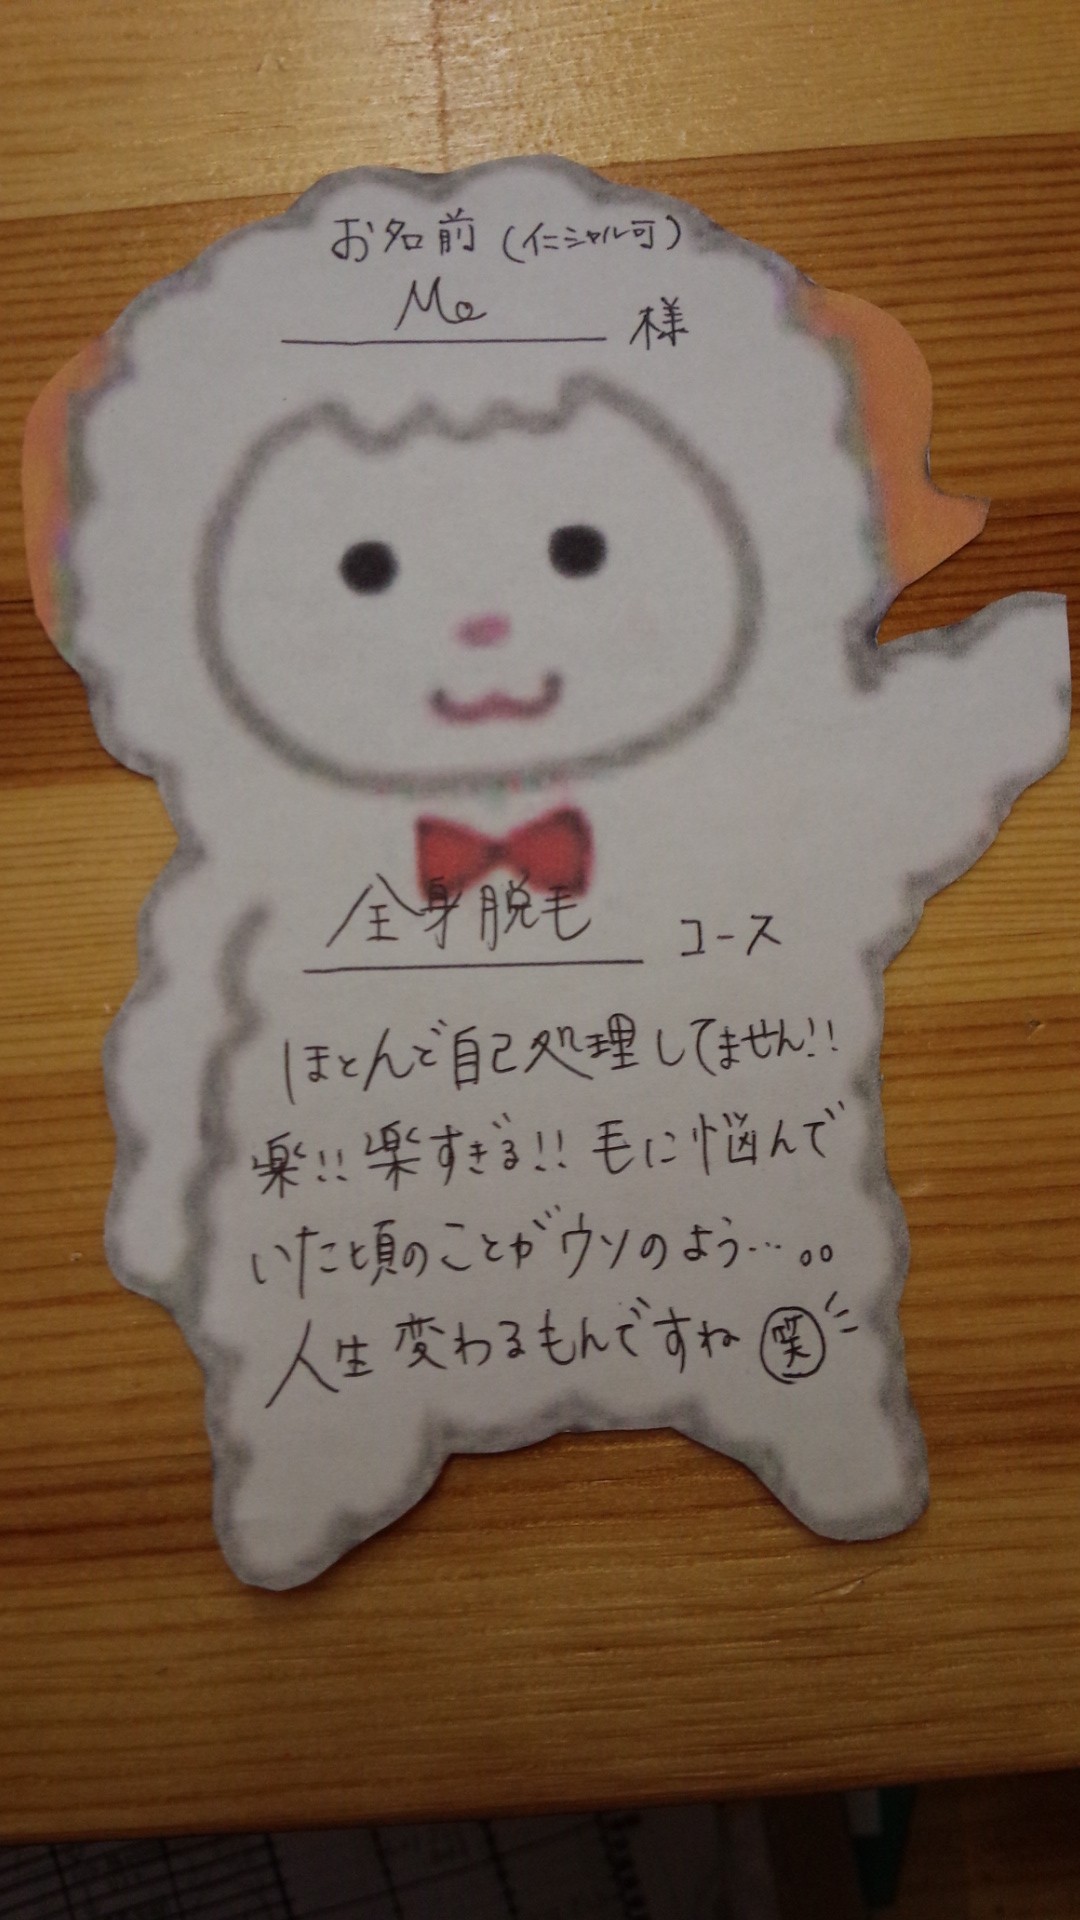 お名前(イニシャル可)
Mo 様
全身脱毛 コース
ほとんど自己処理してません!!
楽!! 楽すぎる!! 毛に悩んで
いた頃のことがウソのよう…。。
人生変わるもんですね 笑